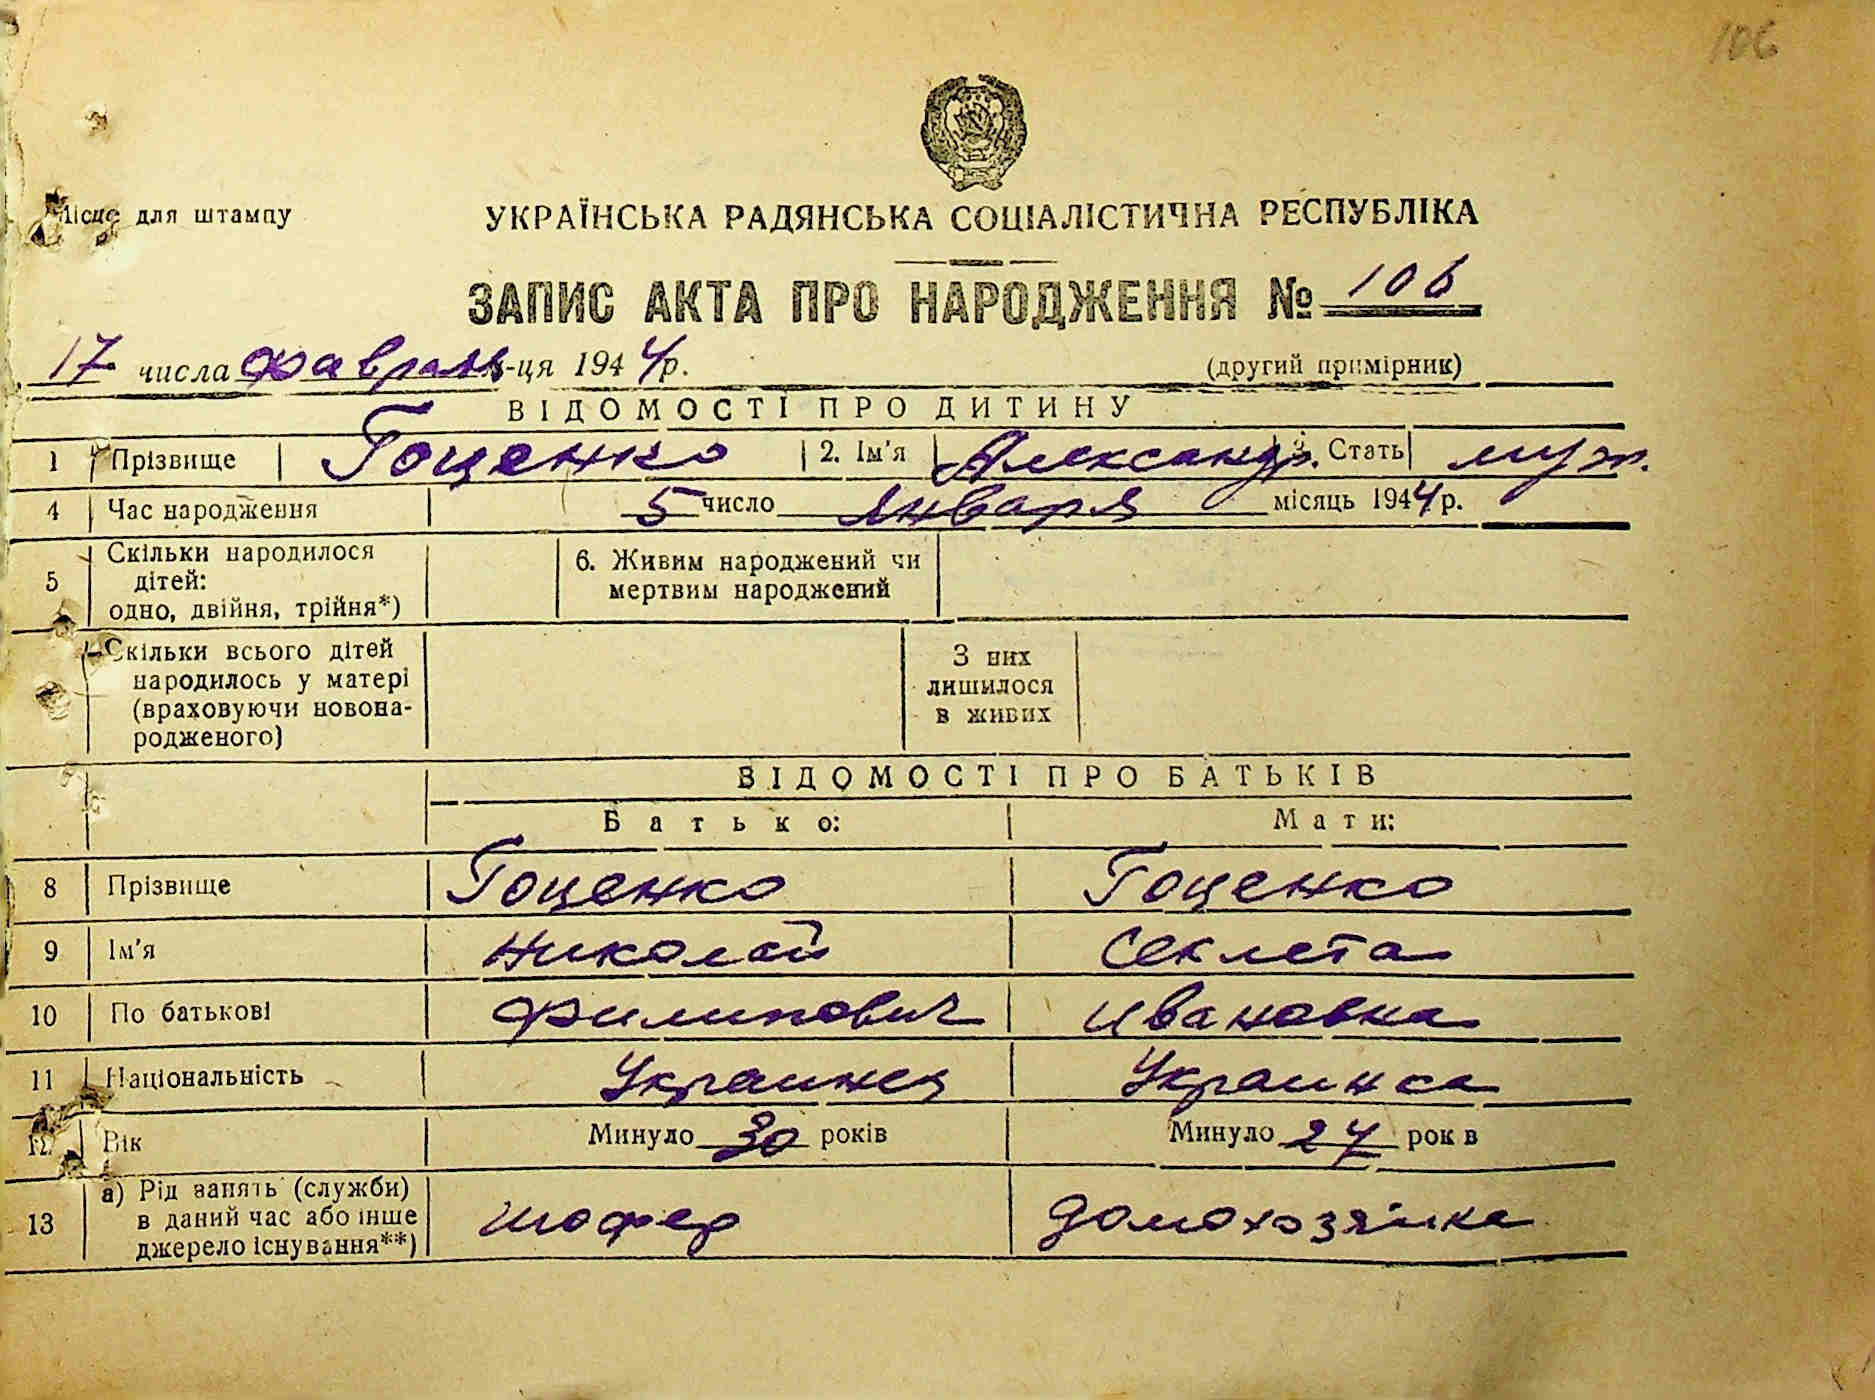 106
Місце для штампу
УКРАЇНСЬКА РАДЯНСЬКА СОЦІАЛІСТИЧНА РЕСПУБЛІКА
ЗАПИС АКТА ПРО НАРОДЖЕННЯ № 106
17 числа февраля м-ця 1944 р. (другий примірник)
ВІДОМОСТІ ПРО ДИТИНУ
1 Прізвище Гоценко 2. Ім'я Александр. 3. Стать муж.
4 Час народження 5 число января місяць 1944 р.
5 Скільки народилося дітей: одно, двійня, трійня*) 6. Живим народжений чи мертвим народжений
Скільки всього дітей народилось у матері (враховуючи новонародженого) З них лишилося в живих
ВІДОМОСТІ ПРО БАТЬКІВ
Батько: Мати:
8 Прізвище Гоценко Гоценко
9 Ім'я Николай Секлета
10 По батькові Филипович Ивановна
11 Національність Украинец Украинка
12 Вік Минуло 30 років Минуло 24 рок в
13 а) Рід занять (служби) в даний час або інше джерело існування**) шофер домохозяйка